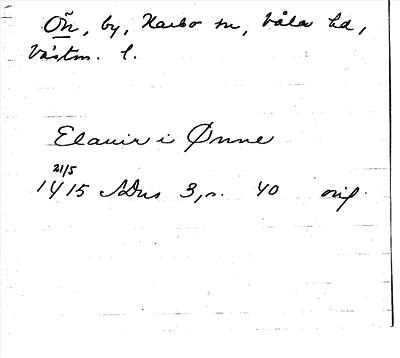 Ön, by, Harbo sn, Våla hd,
Västm. l.
Elavir i Ønne
21/5
1415 SDns 3, s. 40 orig.